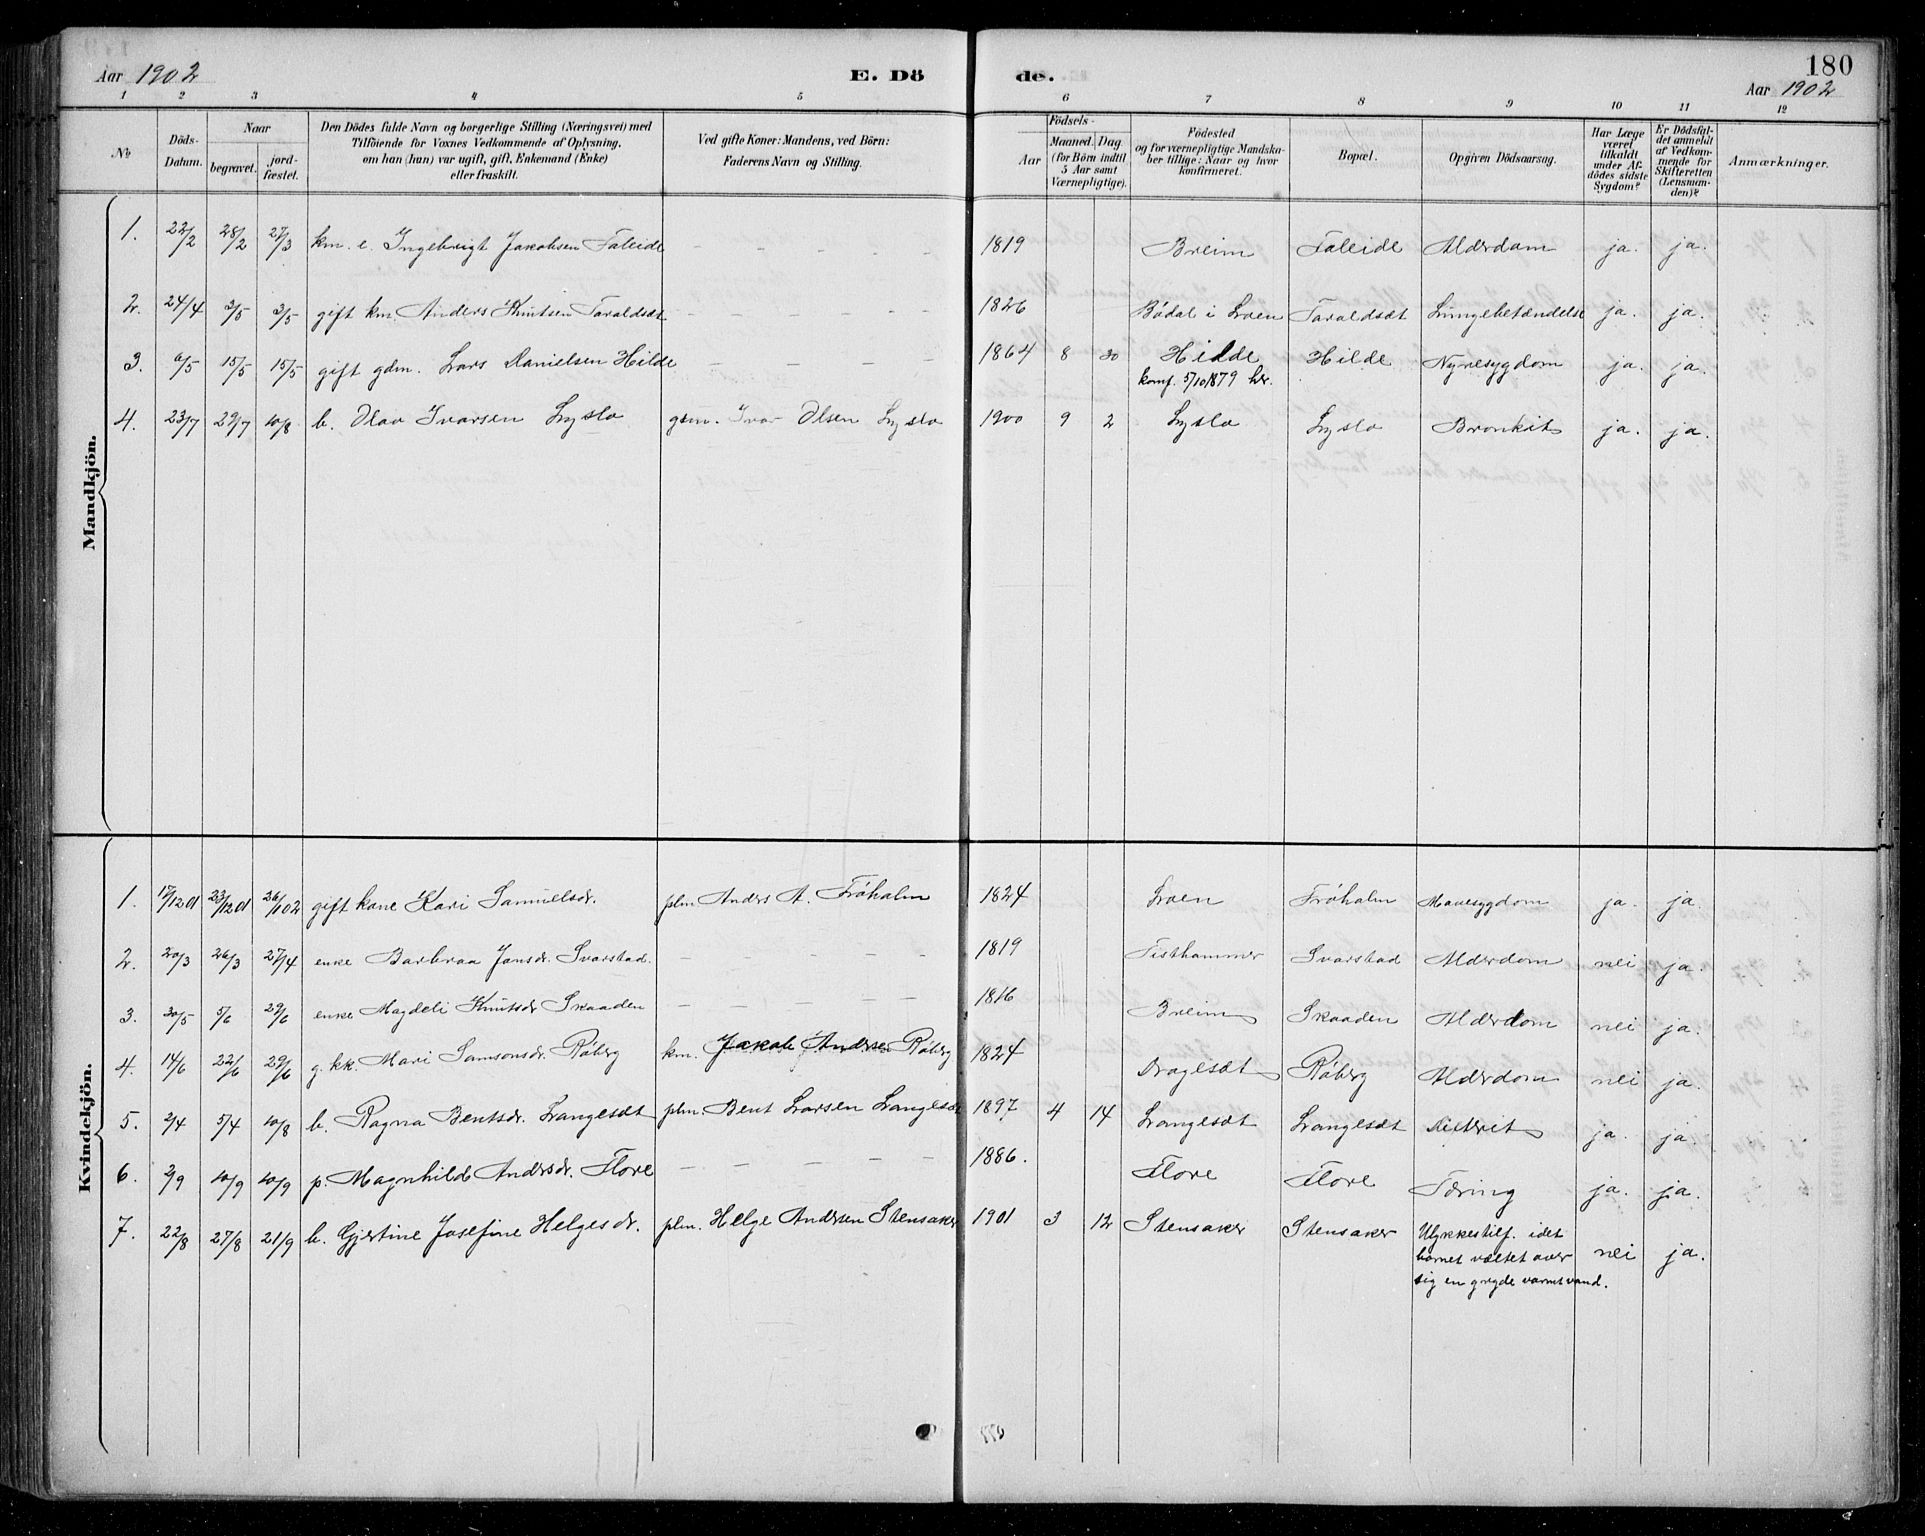 Aar 1902
E. Dö
de.
180
Aar 1902
1 2 3 4 5 6 7 8 9 10 11 12
No
Döds-Datum.
Naar
begravet.
jord-fæstet.
Den Dödes fulde Navn og borgerlige Stilling (Næringsvei) med
Tilföiende for Voxnes Vedkommende af Oplysning,
om han (hun) var ugift, gift, Enkemand (Enke)
eller fraskilt.
Ved gifte Koner: Mandens, ved Börn:
Faderens Navn og Stilling.
Födsels-
Aar
Maaned. Dag
(for Börn indtil
5 Aar samt
Værnepligtige).
Födested
og for værnepligtige Mandska-
ber tillige: Naar og hvor
konfirmeret.
Bopæl.
Opgiven Dödsaarsag.
Har Læge
været
tilkaldt
under Af-
dödes sidste
Sygdom?
Er Dödsfal-
det anmeldt
af Vedkom-
mende for
Skifteretten
(Lensman-
den)?
Anmærkninger.
Mandkjön.
1. 22/2 28/2 27/3 km. e. Ingebrigt Jakobsen Faleide - - - - - 1819 Breim Faleide Alderdom ja. ja.
2. 24/4 3/5 3/5 gift km. Anders Knutsen Taraldsæt - - - - - 1826 Bödal i Loen Taraldsæt Lungebetændelse ja. ja.
3. 6/5 15/5 15/5 gift gdm. Lars Danielsen Hilde - - - - - 1864 8 30 Hilde Hilde Nyresygdom ja. ja.
konf. 5/10 1879 hr.
4. 23/7 29/7 10/8 b. Olav Ivarsen Lyslo gdm. Ivar Olsen Lyslo 1900 9 2 Lyslo Lyslo Bronkit ja. ja.
Kvindekjön.
1. 17/12 01 23/12 01 26/1 02 gift kone Kari Samuelsdr. plm. Anders A. Fröholm 1824 Loen Fröholm Mavesygdom ja. ja.
2. 20/3 26/3 27/4 enke Barbraa Jonsdr. Svarstad. - - - - - 1819 Tisthammer Svarstad Alderdom nei ja.
3. 30/5 5/6 29/6 enke Magdeli Knutsdr Skaaden - - - - - 1816 Breim Skaaden Alderdom nei ja.
4. 14/6 22/6 29/6 g. kk. Mari Samsonsdr. Röberg km. Jakob Andrsen Röberg 1824 Dragesæt Röberg Alderdom nei ja.
5. 2/4 5/4 10/8 b. Ragna Bentsdr. Langesæt plm. Bent Larsen Langesæt 1897 4 14 Langesæt Langesæt ja. ja.
6. 2/9 10/9 10/9 p. Magnhild Andrsdr. Flore - - - - - 1886. Flore Flore Tæring ja. ja.
7. 22/8 27/8 21/9 b. Gjertine Josefine Helgesdr. plm. Helge Andersen Stensaker 1901 3 12 Stensaker Stensaker Ulykkestilf. idet nei ja.
barnet væltet over
sig en gryde varmt vand.